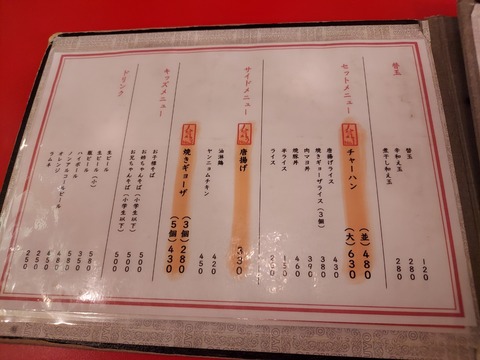 替玉
替玉 120
辛和え玉 280
煮干し和え玉 280
セットメニュー
チャーハン
(並) 480
(大) 630
唐揚げライス 430
焼きギョーザライス(3個) 380
肉マヨ丼 390
焼豚丼 460
半ライス 150
ライス 200
サイドメニュー
唐揚げ 330
油淋鶏 420
ヤンニョムチキン 450
キッズメニュー
焼きギョーザ
(3個) 280
(5個) 430
お子様そば 500
お姉ちゃんそば(小学生以下) 500
お兄ちゃんそば(小学生以下) 500
ドリンク
生ビール 580
生ビール(小) 350
瓶ビール 580
ハイボール 450
ノンアルコールビール
オレンジ 250
ラムネ 250